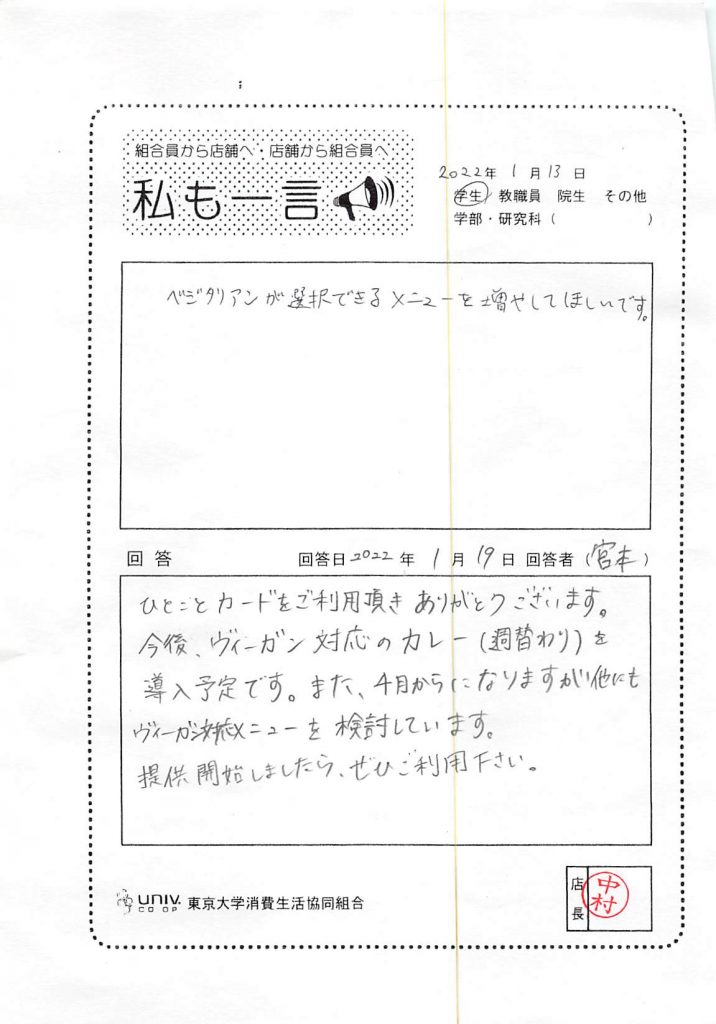 組合員から店舗へ・店舗から組合員へ
私も一言
2022年 1月13日
学生 教職員 院生 その他
学部・研究科( )
ベジタリアンが選択できるメニューを増やしてほしいです。
回答 回答日2022年 1月19日 回答者(宮本)
ひとことカードをご利用頂きありがとうございます。
今後、ヴィーガン対応のカレー(週替わり)を
導入予定です。また、4月からになりますが他にも
ヴィーガン対応メニューを検討しています。
提供開始しましたら、ぜひご利用下さい。
UNIV.
CO-OP
東京大学消費生活協同組合
店長
中村